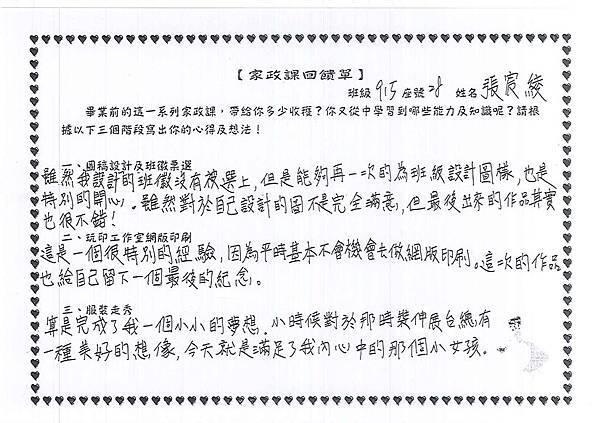 【家政課回饋單】
班級 915 座號 28 姓名 張宸綾
畢業前的這一系列家政課,帶給你多少收穫?你又從中學習到哪些能力及知識呢?請根
據以下三個階段寫出你的心得及想法!
一、圖稿設計及班徽票選
雖然我設計的班徽沒有被選上,但是能夠再一次的為班級設計圖樣,也是
特別的開心。雖然對於自己設計的圖不是完全滿意,但最後出來的作品其實
也很不錯!
二、玩印工作室網版印刷
這是一個很特別的經驗,因為平時基本不會機會去做網版印刷。這次的作品
也給自己留下一個最後的紀念。
三、服裝走秀
算是完成了我一個小小的夢想。小時候對於那時裝伸展台總有
一種美好的想像,今天就是滿足了我內心中的那個小女孩。